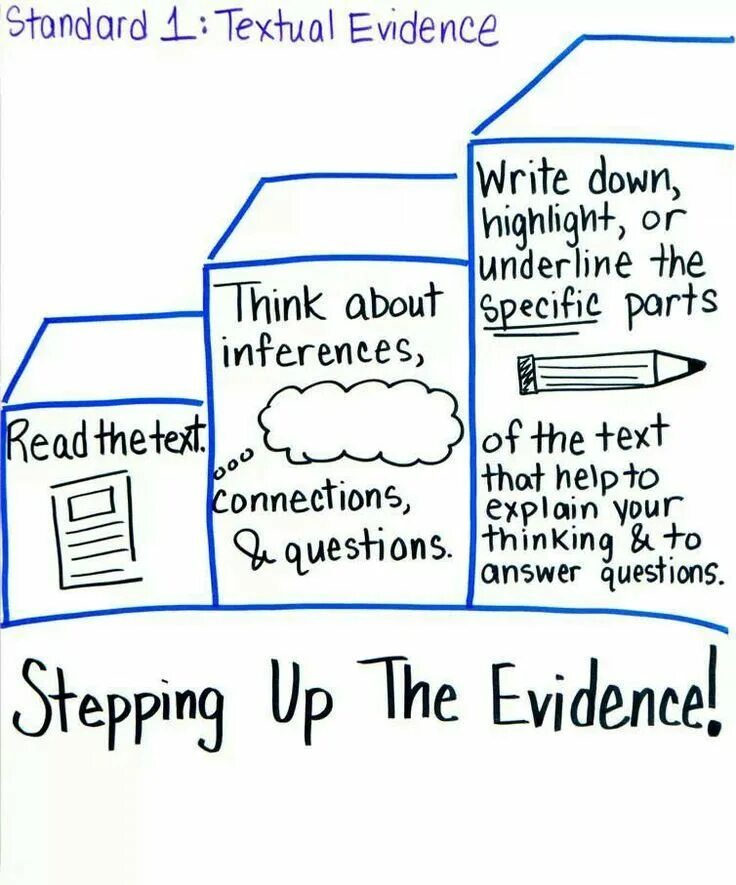 Standard 1: Textual Evidence
Read the text.
Think about
inferences,
connections,
& questions.
Write down,
highlight, or
underline the
specific parts
of the text
that help to
explain your
thinking & to
answer questions.
Stepping Up The Evidence!